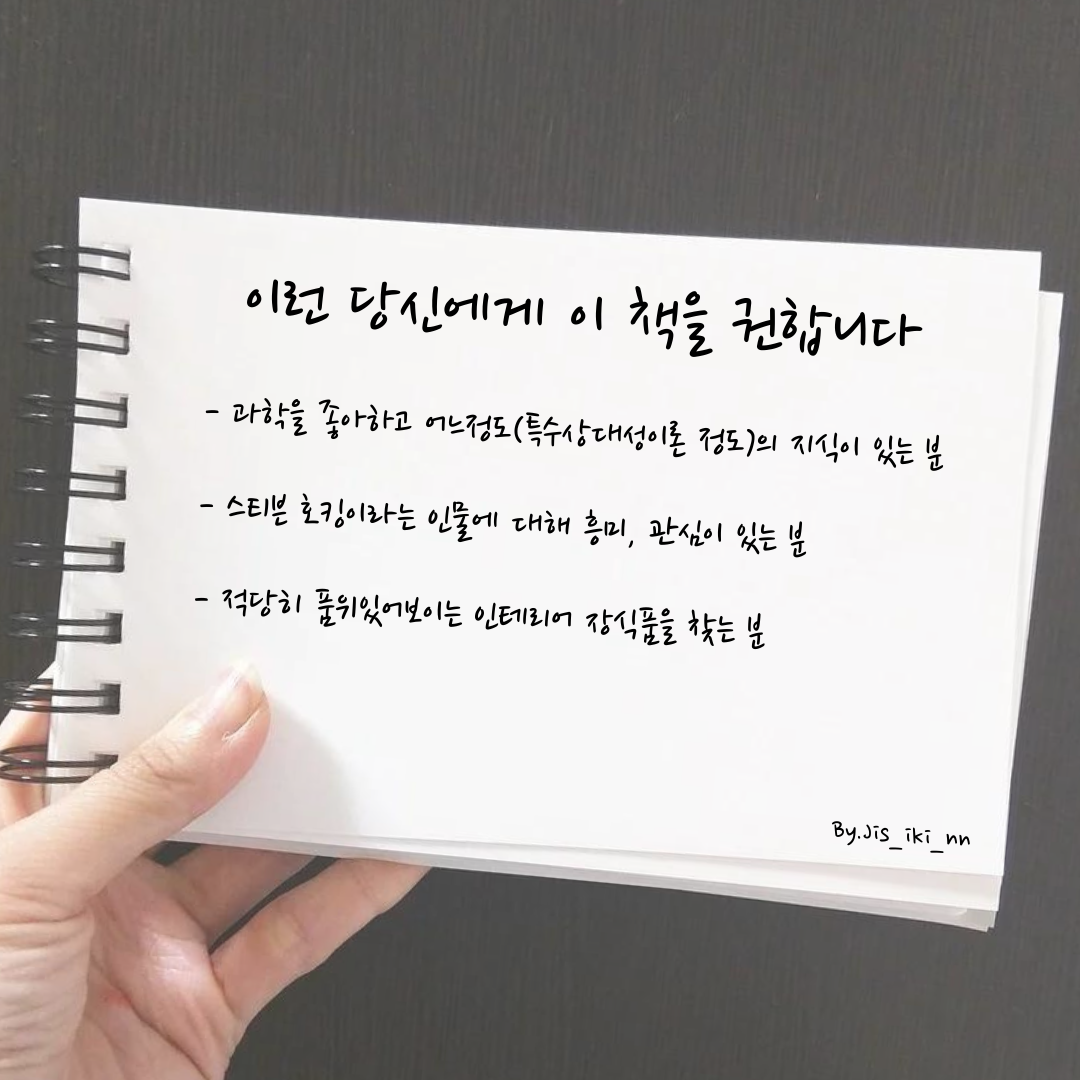 이런 당신에게 이 책을 권합니다
- 과학을 좋아하고 어느정도(특수상대성이론 정도)의 지식이 있는 분
- 스티븐 호킹이라는 인물에 대해 흥미, 관심이 있는 분
- 적당히 품위있어보이는 인테리어 장식품을 찾는 분
By.Jis_iki_nn